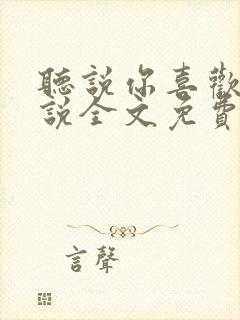 聽說你喜歡
說全文免費
言聲